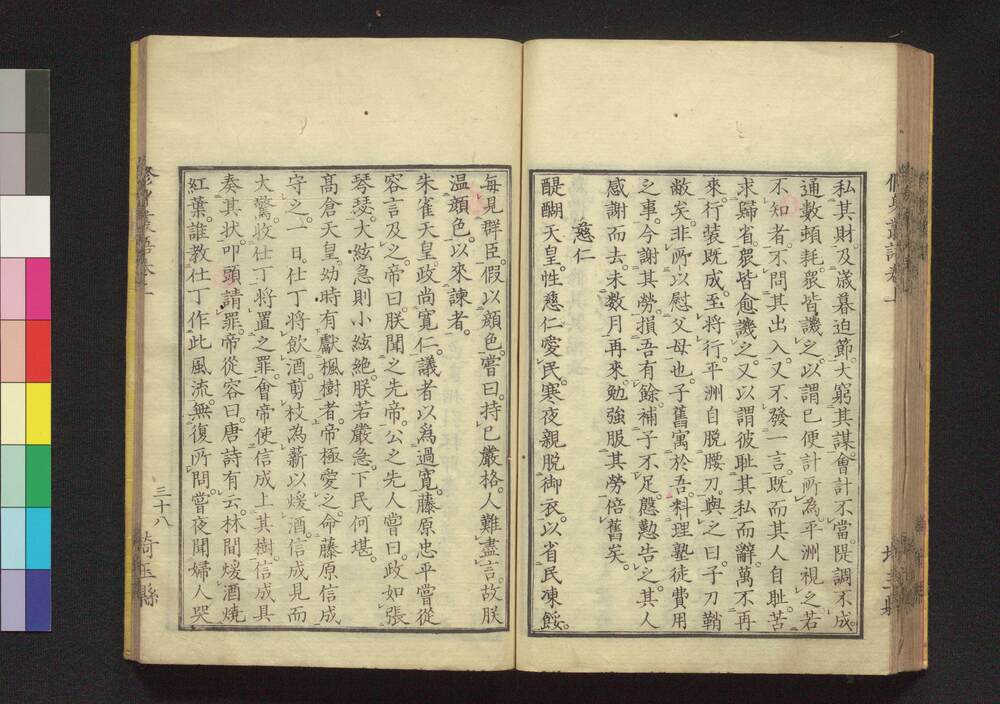 私其財。及歲暮迫節。大窮其謀。會計不當。隄調不成。
通數頓耗。衆皆譏之。以謂已便計所為。平洲視之若
不知者。不問其出入。又不發一言。既而其人自耻。苦
求歸省。衆皆愈譏之。又以謂彼耻其私而辭。萬不再
來。行装既成。至將行。平洲自脱腰刀。與之曰。子刀鞘
敝矣。非所以慰父母也。子舊寓於吾。料理塾徒費用
之事。今謝其勞。損吾有餘。補子不足。慇懃告之。其人
感謝而去。未数月再來。勉強服其勞倍舊矣。
慈仁
醍醐天皇。性慈仁愛民。寒夜親脱御衣。以省民凍餒。
毎見群臣。假以顔色。嘗曰。持已嚴格。人難盡言。故朕
温顔色。以來諫者。
朱雀天皇。政尚寛仁。議者以爲過寛。藤原忠平嘗從
容言及之。帝曰。朕聞之先帝。公之先人嘗曰。政如張
琴瑟。大絃急則小絃絶。朕若嚴急。下民何堪。
髙倉天皇。幼時有獻楓樹者。帝極愛之。命藤原信成
守之。一日。仕丁將飲酒。剪枝為薪以煖酒。信成見而
大驚。收仕丁將置之罪。會帝使信成上其樹。信成具
奏其状。叩頭請罪。帝從容曰。唐詩有云。林間煖酒燒
紅葉。誰教仕丁作此風流。無復所問。嘗夜聞婦人哭
三十八
埼玉縣